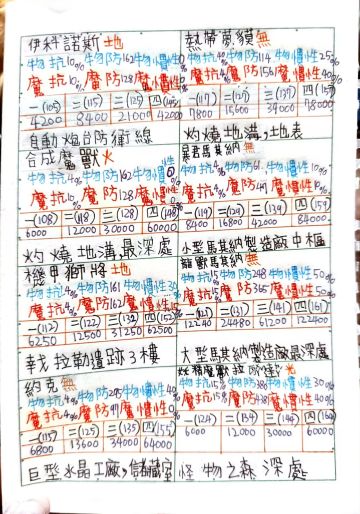 伊科諾斯 土也
物抗10% 物防162 物慣性0%
魔抗10% 魔防128 魔慣性0%
一(105) 二(115) 三(125) 四(145)
4200 8400 21000 42000
自動炮台防衛線
熱帶夢貘 無
物抗40% 物防114 物慣性25%
魔抗40% 魔防156 魔慣性40%
一(117) 二(127) 三(137)
7800 15600 39000 78000
灼燒地溝,地表
合成魔獸 火
物抗4% 物防162 物慣性0%
魔抗10% 魔防128 魔慣性0%
一(108) 二(118) 三(128) 四(148)
6000 12000 30000 60000
灼燒地溝最深處
暴君馬其納 無
物抗4% 物防61 物慣性10%
魔抗4% 魔防 魔慣性10%
一(119) 二(129) 三(139) 四(159)
8400 16800 42000 84000
小型馬其納製造廠中樞
機甲獅將 土也
物抗4% 物防161 物慣性30%
魔抗4% 魔防162 魔慣性15%
一(112) 二(122) 三(132) 四(152)
6250 12500 31250 62500
戟拉勒遺跡3樓
羅獸馬其納 無
物抗15% 物防248 物慣性50%
魔抗15% 魔防365 魔慣性50%
一(121) 二(131) 三(141) 四(161)
12240 24480 61200 122400
大型馬其納製造廠最深處
約克 無
物抗4% 物防295 物慣性40%
魔抗4% 魔防 魔慣性0%
一(115) 二(125) 三(135) 四(155)
6800 13600 34000 68000
巨型水晶工廠,儲藏室
妖精魔獸 火
物抗15% 物防386 物慣性30%
魔抗15% 魔防438 魔慣性40%
一(124) 二(134) 三(144) 四(164)
6000 12000 30000 60000
怪物之森深處